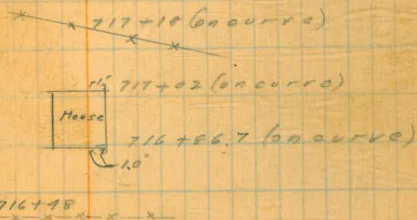 717+18 (on curve)
717+02 (on curve)
House
716+86.7 (on curve)
1.0'
716+48